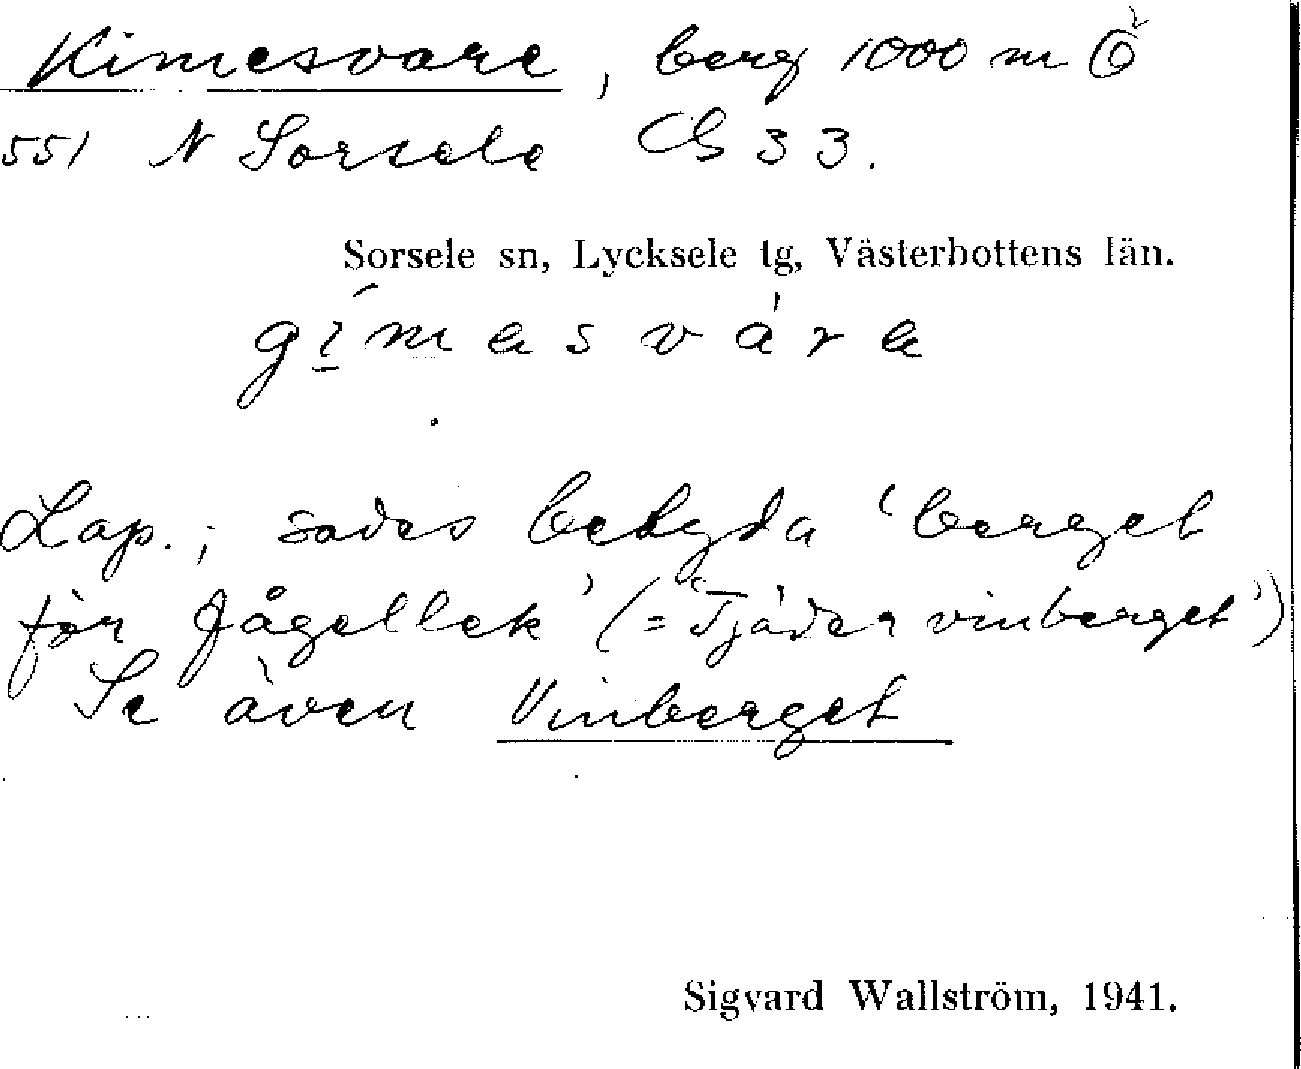 Kimesvare, berg 1000 m Ö
551 N Sorsele C§ 33.
Sorsele sn, Lycksele tg, Västerbottens län.
gi̱masvára
Lap.; sades betyda 'berget
för fågellek' (= 'Tjädervinberget')
Se även Vinberget
Sigvard Wallström, 1941.